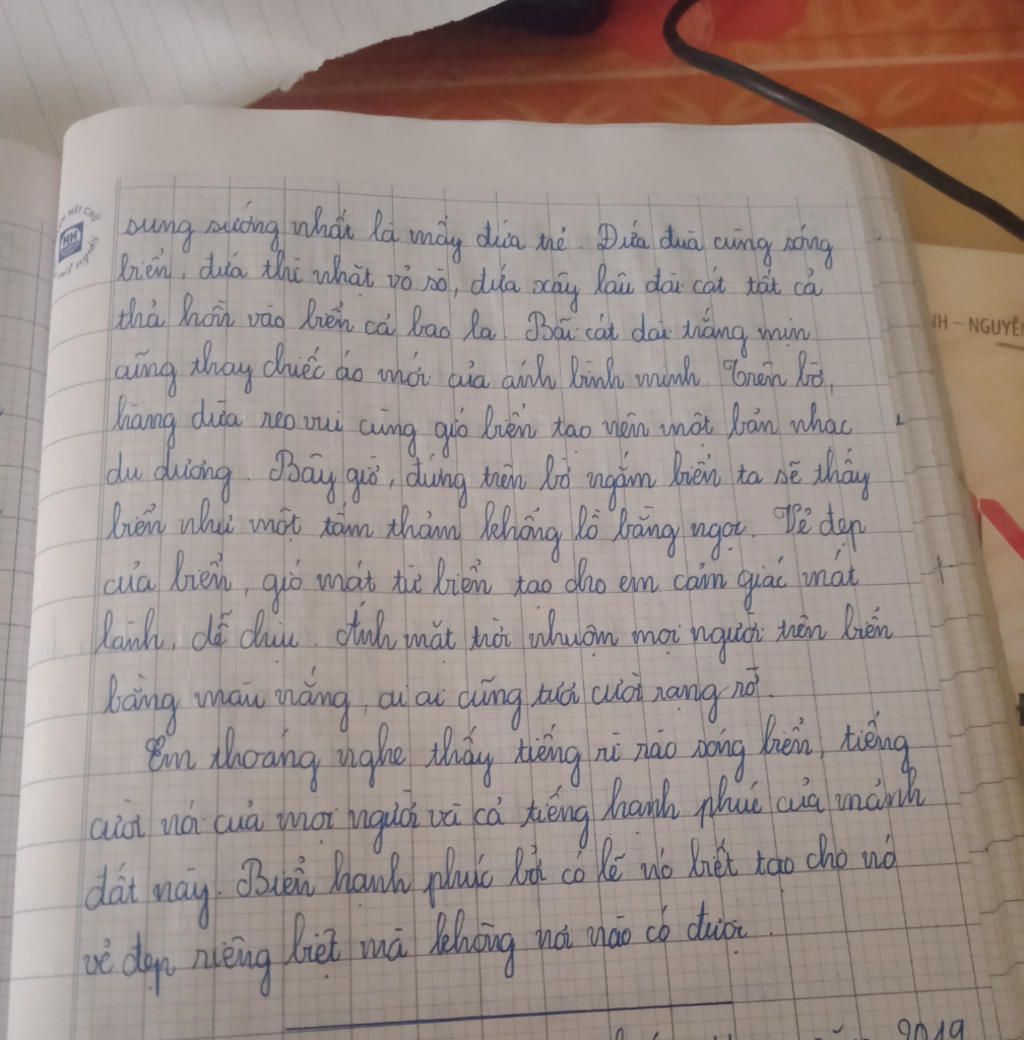 sung sướng nhất là mấy đứa trẻ. Đứa đuà cùng sóng
biển, đứa thì nhặt vỏ sò, đứa xây lâu đài cát tất cả
thả hồn vào biển cả bao la. Bãi cát dài trắng mịn
cũng thay chiếc áo mới của ánh bình minh. Trên bờ,
hàng dừa reo vui cùng gió biển tạo nên một bản nhạc
du dương. Bây giờ, đứng trên bờ ngắm biển ta sẽ thấy
biển như một tấm thảm khổng lồ bằng ngọc. Vẻ đẹp
của biển, gió mát từ biển tạo cho em cảm giác mát
lành, dễ chịu. Ánh mặt trời nhuộm mọi người trên biển
bằng màu nắng, ai ai cũng tươi cười rạng rỡ.
Em thoáng nghe thấy tiếng rì rào sóng biển, tiếng
cười nói của mọi người và cả tiếng hạnh phúc của mảnh
đất này. Biển hạnh phúc bởi có lẽ nó biết tạo cho nó
vẻ đẹp riêng biệt mà không nơi nào có được.
HH
NH - NGUYỄ
2019